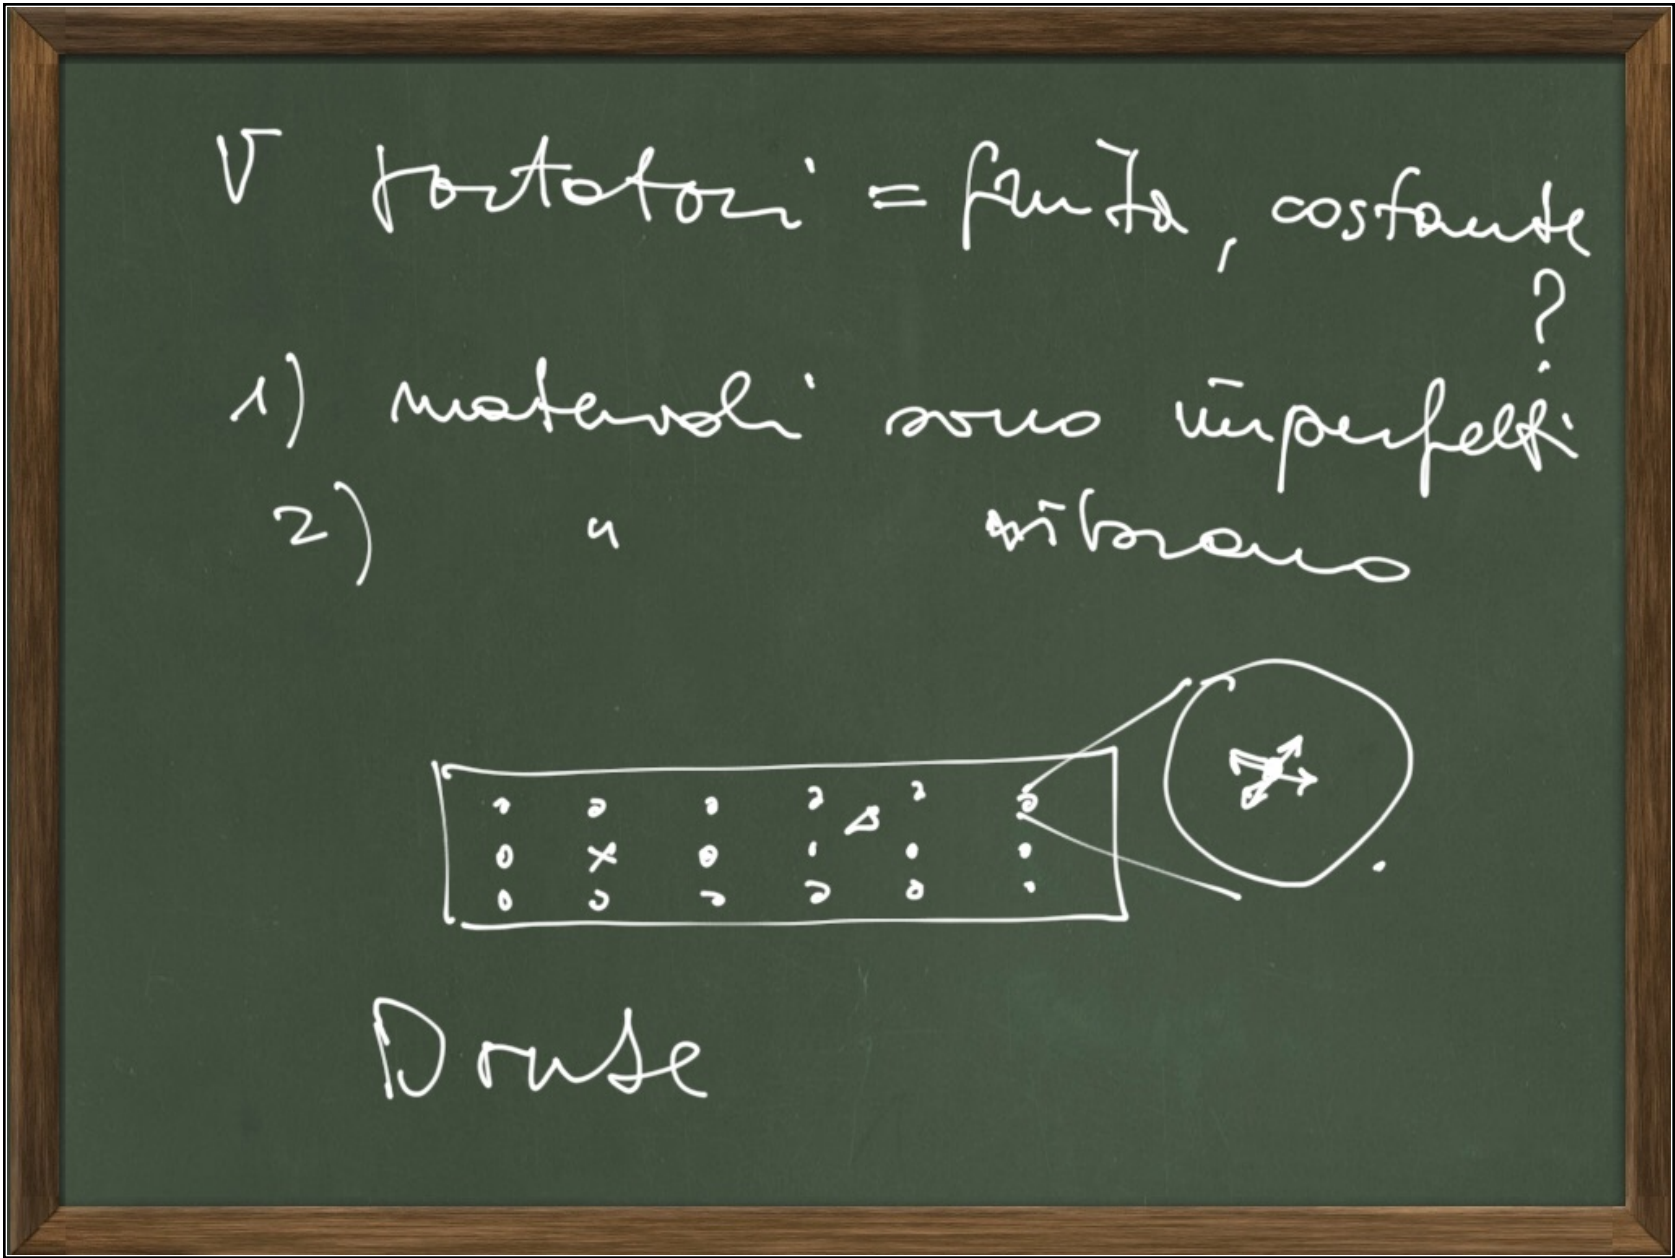 v portatori = finita, costante
?
1) materiali sono imperfetti
2) " vibrano
Drude